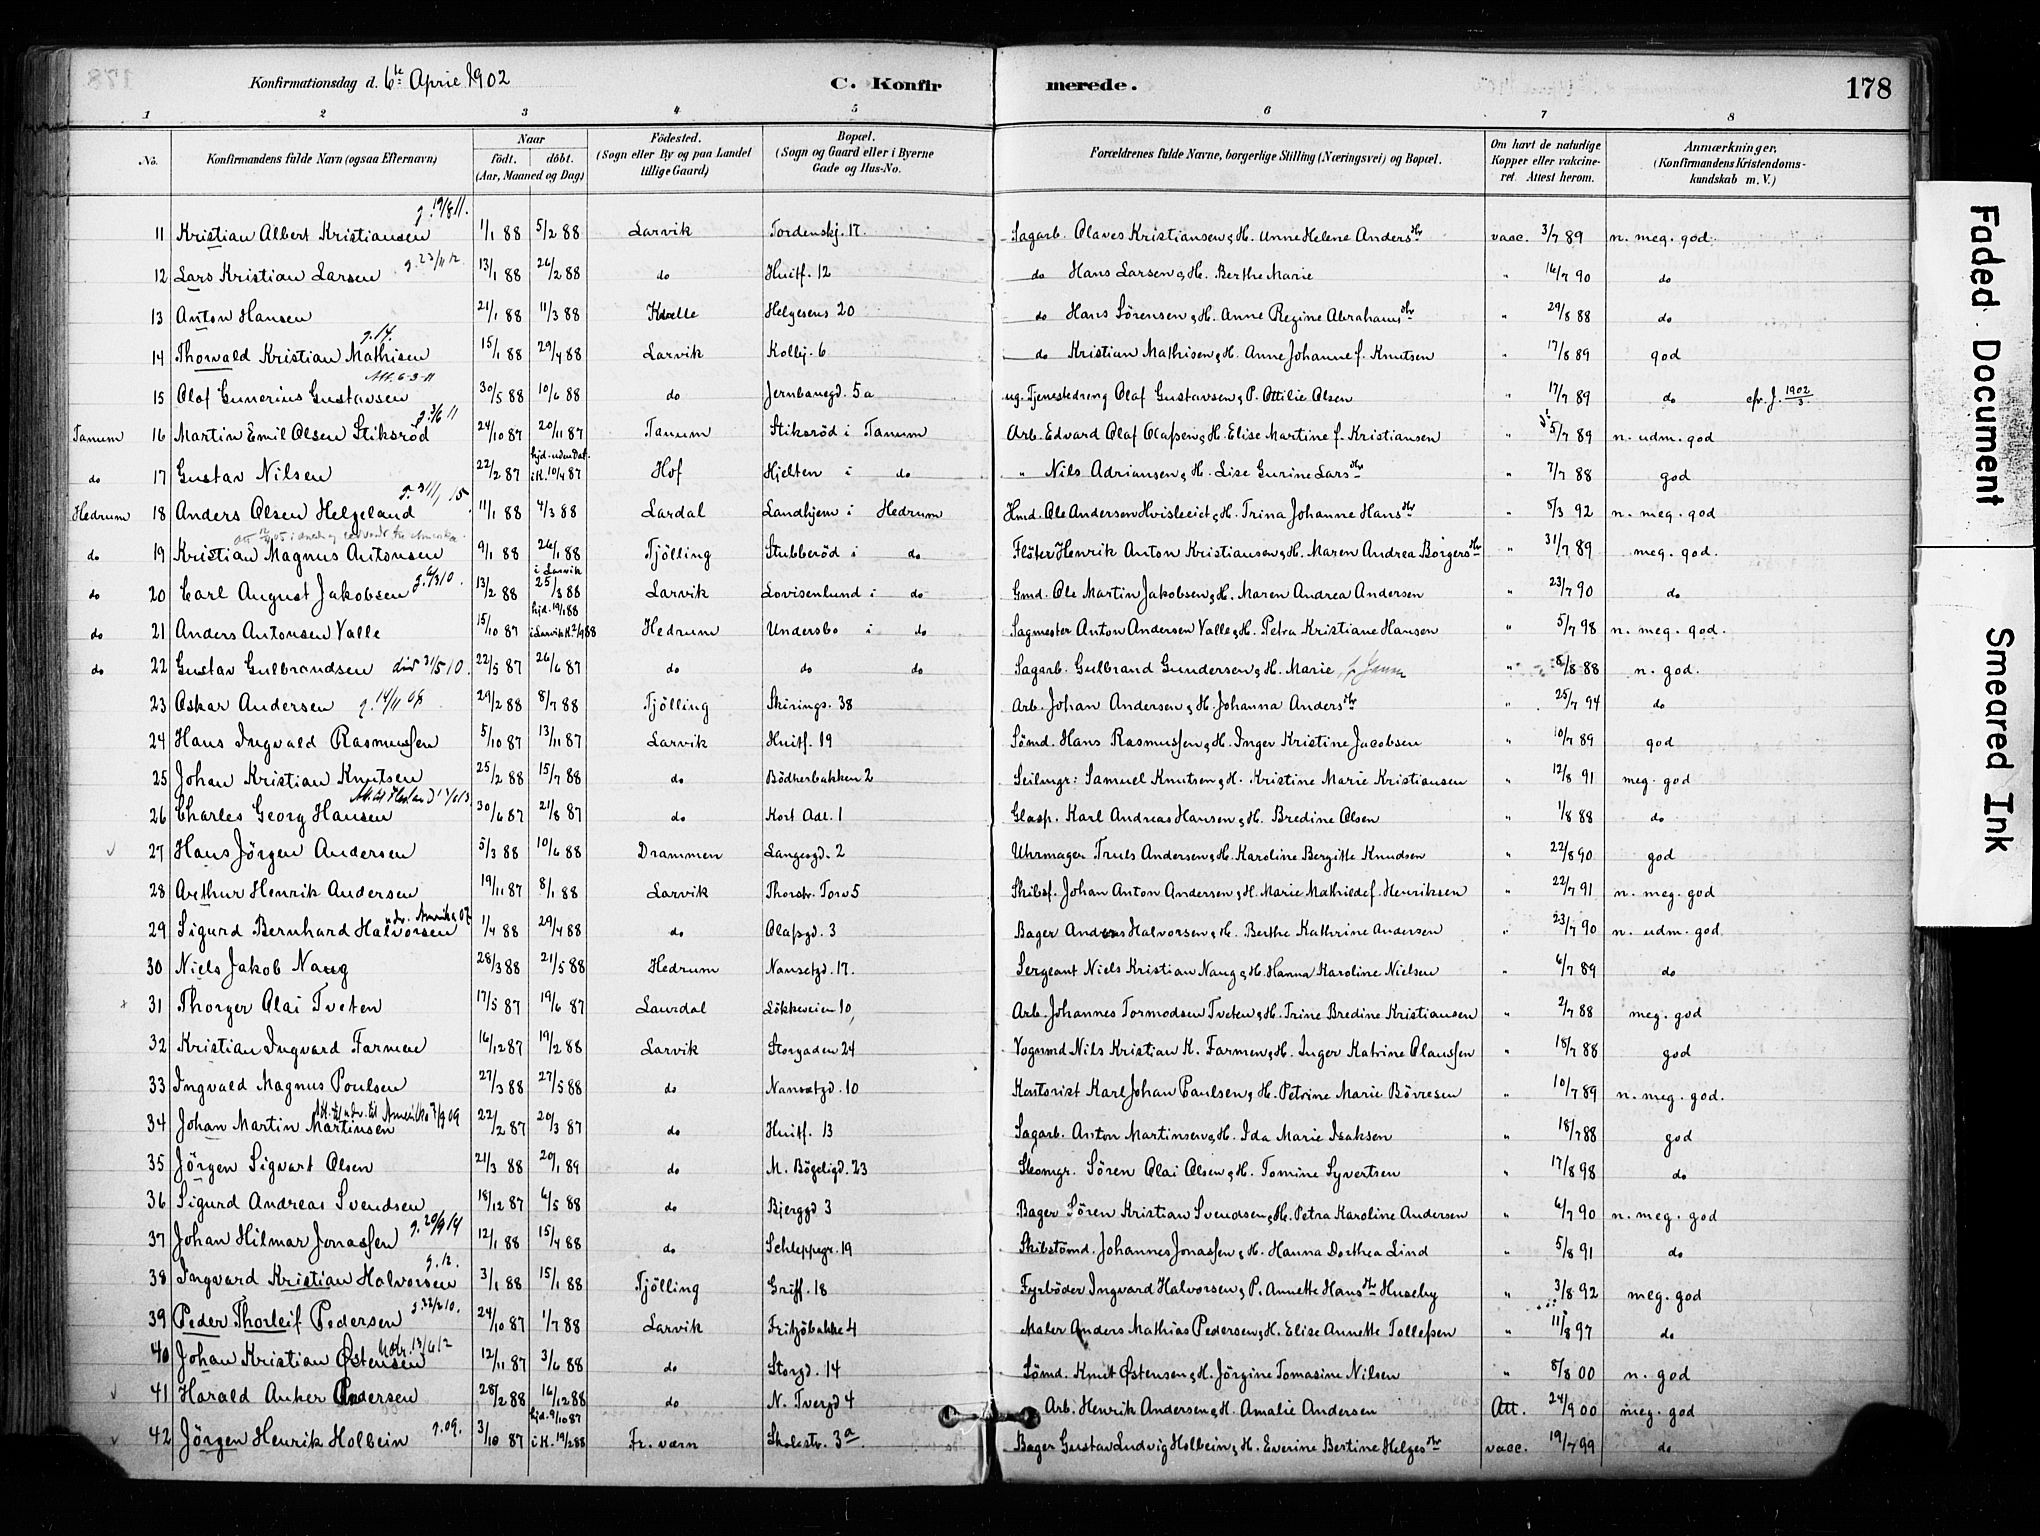 178
Konfirmationsdag d. 6te April 1902
C. Konfirmerede.
1 2 3 4 5 6 7 8
No. Konfirmandens fulde Navn (ogsaa Efternavn) Naar født. döbt. (Aar, Maaned og Dag) Födested. (Sogn eller By og paa Landet tillige Gaard) Bopæl. (Sogn og Gaard eller i Byerne Gade og Hus-No. Forældrenes fulde Navne, borgerlige Stilling (Næringsvei) og Bopæl. Om havt de naturlige Kopper eller vaccineret. Attest herom. Anmærkninger, (Konfirmandens Kristendomskundskab m. V.)
g. 19/8 11.
11 Kristian Albert Kristiansen 1/1 88 5/2 88 Larvik Tordenskj. 17 Sagarb. Olaves Kristiansen & H. Anne Helene Andersdtr vacc. 3/7 89 n. meg. god
12 Lars Kristian Larsen g. 23/11 12. 13/1 88 26/2 88 do Huitf. 12 do Hans Larsen & H. Berthe Marie " 14/7 90 do
13 Anton Hansen 21/1 88 11/3 88 Kvelle Helgesens 20 do Hans Sörensen & H. Anne Regine Abrahamsdtr " 29/8 88 do
g. 14.
14 Thorvald Kristian Mathisen 15/1 88 29/4 88 Larvik Kolbj. 6 do Kristian Mathisen & H. Anne Johanne f. Knutsen " 17/8 89 god
Att. 6-3-11
15 Olaf Gunerius Gustavsen 30/5 88 10/6 88 do Jernbanegd. 5a ug. Tjenestedreng Olaf Gustavsen & P. Ottilie Olsen " 17/7 89 do cfr. J. 1902/3
g. 3/6 11
Tanum 16 Martin Emil Olsen Stiksröd 24/10 87 20/11 87 Tanum Stiksröd i Tanum Arb. Edvard Olaf Olafsen & H. Elise Martine f. Kristiansen " 5/7 89 n. udm. god
do 17 Gustav Nilsen 22/2 87 hjd. uden Dat. i K. 10/4 87 Hof Hjelten i do " Nils Adriansen & H. Lise Gurine Larsdtr " 7/7 88 god
Hedrum 18 Anders Olsen Helgeland 11/1 88 4/3 88 Lardal Landhjem i Hedrum Hmd. Ole Andersen Hvisleeiet & H. Trina Johanne Hansdtr " 8/3 92 n. meg. god
do 19 Kristian Magnus Antonsen 9/1 88 26/1 88 Tjölling Stubberöd i do Flöter Henrik Anton Kristiansen & H. Maren Andrea Börgersdtr " 31/7 89 meg. god.
do 20 Carl August Jakobsen 13/2 88 i Larvik 25/3 88 Larvik Lovisenlund i do Gmd. Ole Martin Jakobsen & H. Maren Andrea Andersen " 23/7 90 do
do 21 Anders Antonsen Valle 15/10 87 hjd. 19/1 88 i Larvik K. 2/4 88 Hedrum Undersbo i do Sagmester Anton Andersen Valle & H. Petra Kristiane Hansen " 5/7 98 n. meg. god.
do 22 Gustav Gulbrandsen 22/5 87 26/6 87 do do do Sagarb. Gulbrand Gundersen & H. Marie " 8/8 88 n. god.
23 Oskar Andersen g. 14/11 08 29/2 88 8/7 88 Tjölling Skirings. 38 Arb. Johan Andersen & H. Johanna Andersdtr " 25/7 94 do
24 Hans Ingvald Rasmussen 5/10 87 13/11 87 Larvik Huitf. 19 Sömd. Hans Rasmussen & H. Inger Kristine Jacobsen " 10/7 89 god
25 Johan Kristian Knutsen 25/2 88 15/7 88 do Bödkerbakken 2 Seilmgr: Samuel Knutsen & H. Kristine Marie Kristiansen " 12/8 91 meg. god
26 Charles Georg Hansen 30/6 87 21/8 87 do Kort Adl. 1 Glasp. Karl Andreas Hansen & H. Bredine Olsen " 1/8 88 do
27 Hans Jörgen Andersen 5/3 88 10/6 88 Drammen Langesgd. 2 Uhrmager Truls Andersen & H. Karoline Bergitte Knudsen " 22/8 90 god
28 Arthur Henrik Andersen 19/11 87 8/1 88 Larvik Thorstr. Torv 5 Skibsf. Johan Anton Andersen & H. Marie Mathilde f. Henriksen " 22/7 91 n. meg. god
udv. Amerika 07
29 Sigurd Bernhard Halvorsen 1/4 88 29/4 88 do Olafsgd. 3 Bager Andreas Halvorsen & H. Berthe Kathrine Andersen " 23/7 90 n. udm. god
30 Niels Jakob Naug 28/3 88 21/5 88 Hedrum Nansetgd. 17. Sergeant Niels Kristian Naug & H. Hanna Karoline Nielsen " 6/7 89 do
31 Thorger Olai Tveten 17/5 87 19/6 87 Laurdal Lökkeveien 10, Arb. Johannes Tormodsen Tveten & H. Trine Bredine Kristiansen " 2/7 88 meg. god
32 Kristian Ingvard Farmen 16/12 87 19/2 88 Larvik Storgaden 24 Vognmd Nils Kristian K. Farmen & H. Inger Katrine Claussen " 18/7 88 god
33 Ingvald Magnus Poulsen 27/3 88 27/5 88 do Nansetgd. 10 Kontorist Karl Johan Paulsen & H. Petrine Marie Bövresen " 10/7 89 n. meg. god.
Att. udv. til Amerika 7/9 09
34 Johan Martin Martinsen 22/2 87 20/3 87 do Huitf. 13 Sagarb. Anton Martinsen & H. Ida Marie Isaksen " 18/7 88 god
35 Jörgen Sigvart Olsen 21/3 88 20/1 89 do M. Bögeligd. 23 Skomgr. Sören Olai Olsen & H. Tomine Syvertsen " 17/8 98 do
36 Sigurd Andreas Svendsen 18/12 87 6/5 88 do Bjerggd 3 Bager Sören Kristian Svendsen & H. Petra Karoline Andersen " 6/7 90 n. meg. god
g. 20/9 14
37 Johan Hilmar Jonassen 12/1 88 15/4 88 do Schleppegr. 19 Skibstömd. Johannes Jonassen & H. Hanna Dorthea Lind " 5/8 91 do
g. 12.
38 Ingvard Kristian Halvorsen 3/1 88 15/1 88 Tjölling Griff. 18 Fyrböder Ingvard Halvorsen & P. Annette Hansdtr Huseby " 3/8 92 meg. god
39 Peder Thorleif Pedersen 24/10 87 1/7 88 Larvik Fritzöbakke 4 Maler Anders Mathias Pedersen & H. Elise Annette Tollefsen " 11/8 97 do
Udv. 13/6 12
40 Johan Kristian Østensen 12/11 87 3/6 88 do Storgd. 14 Sömd. Knut Østensen & H. Jörgine Tomasine Nilsen " 8/8 00 n. god
41 Harald Anker Andersen 28/2 88 16/12 88 do N. Tvergd 4 Arb. Henrik Andersen & H. Amalie Andersen Att. 24/9 00 meg. god
42 Jörgen Henrik Holbein g. 09. 3/10 87 hjd. 9/10 87 i K. 19/2 88 Fr. værn Skolestr. 3a. Bager Gustav Ludvig Holbein & H. Everine Bertine Helgesdtr vacc. 19/7 99 do
Faded Document
Smeared Ink